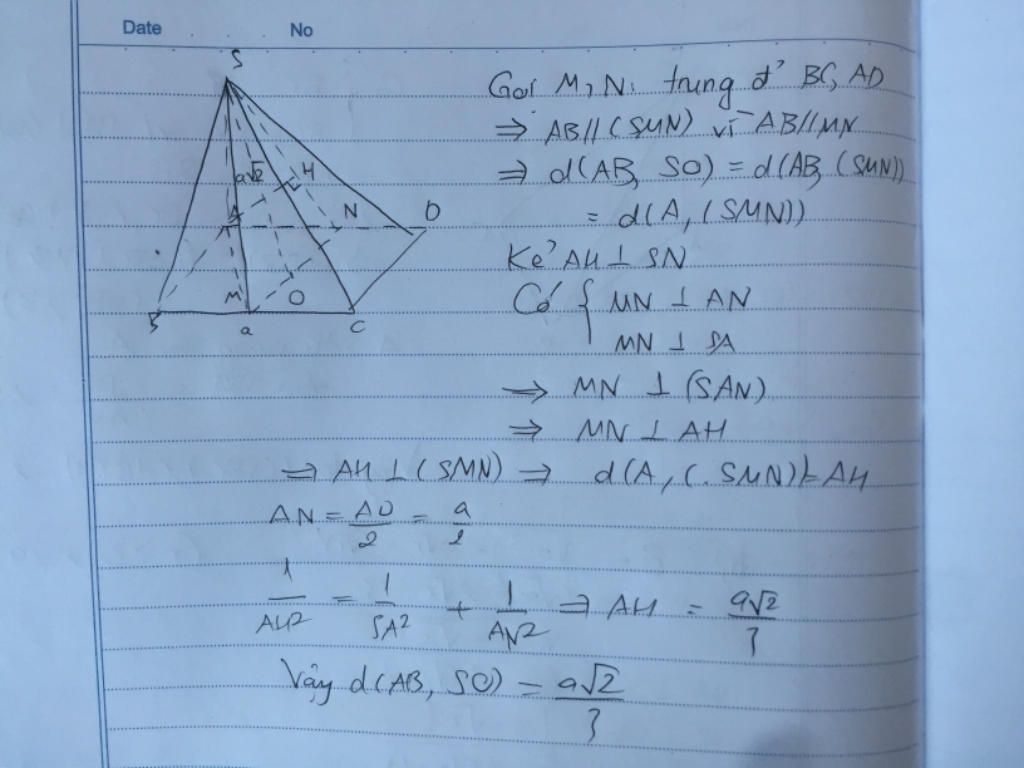 Date No
S
Gọi M, N: trung đ' BC, AD
⇒ AB // (SMN) vì AB // MN
a√2 H
⇒ d(AB, SO) = d(AB, (SMN))
A N D
= d(A, (SMN))
Kẻ AH ⊥ SN
B M O C
a
Có { MN ⊥ AN
MN ⊥ SA
⇒ MN ⊥ (SAN)
⇒ MN ⊥ AH
⇒ AH ⊥ (SMN) ⇒ d(A, (SMN)) = AH
AN = AD/2 = a/2
1/AH² = 1/SA² + 1/AN² ⇒ AH = a√2/3
Vậy d(AB, SO) = a√2/3